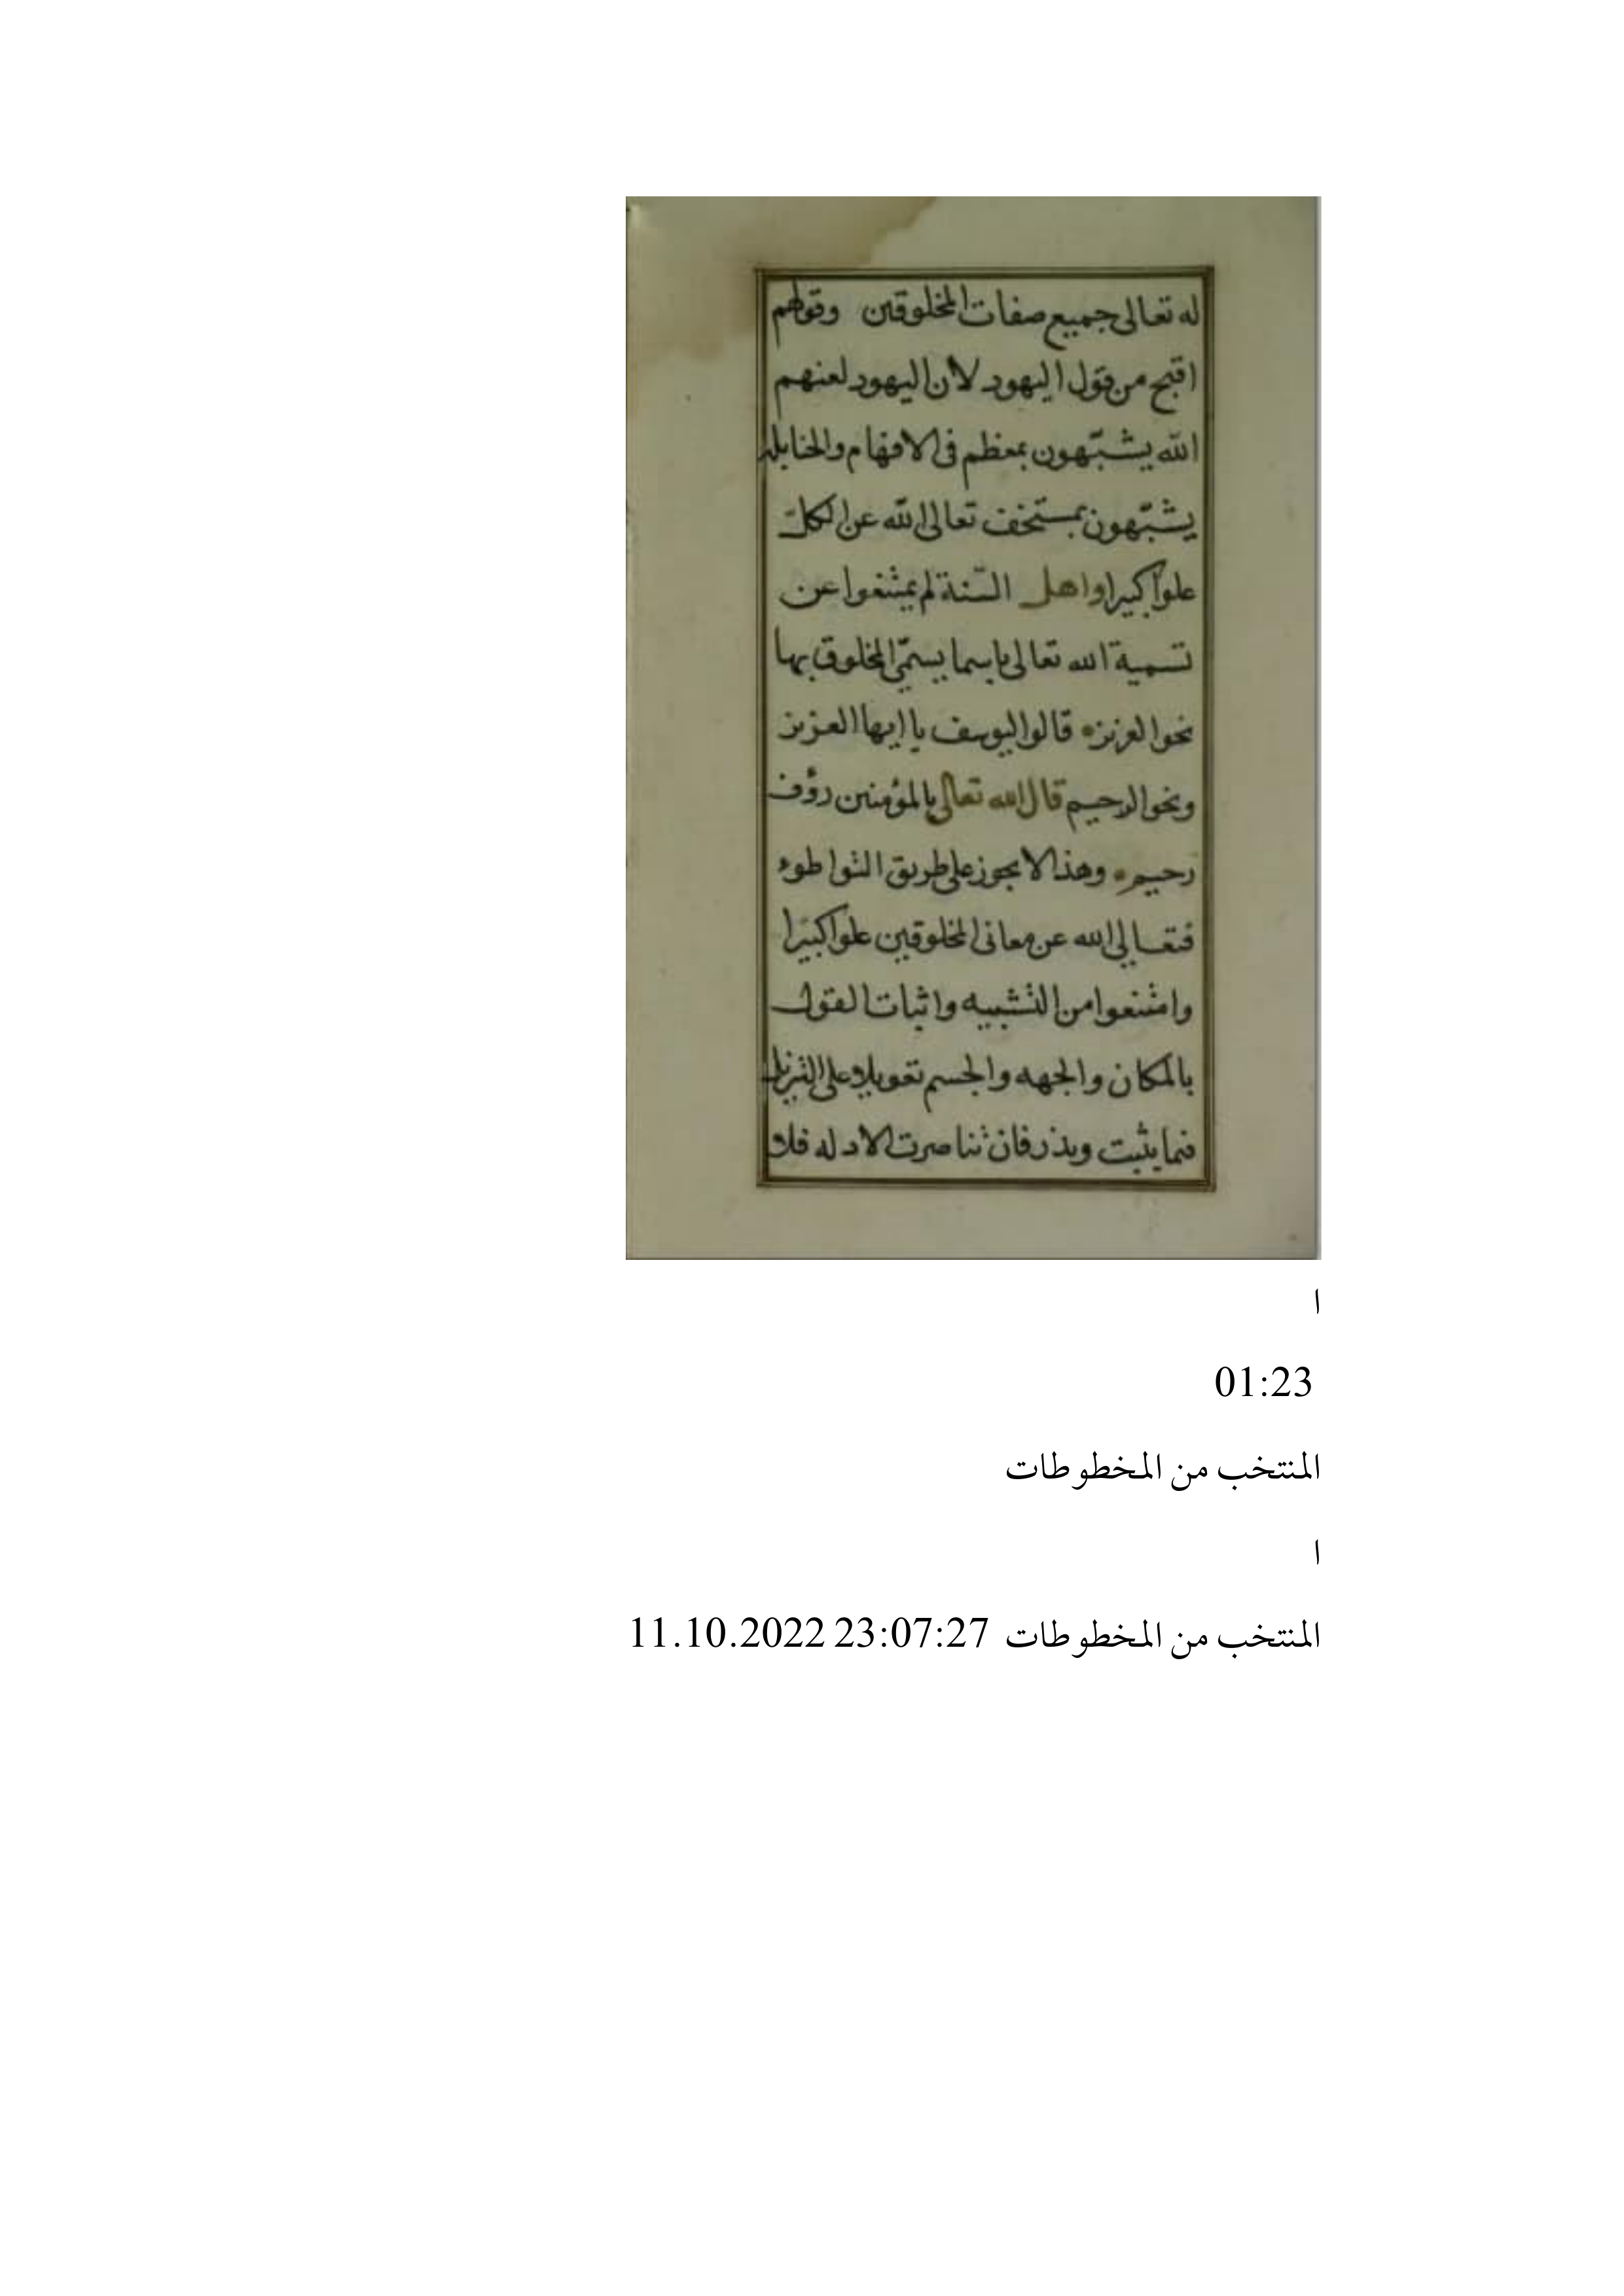 له تعالى جميع صفات المخلوقين وقولهم
اقبح من قول اليهود لان اليهود لعنهم
الله يشبّهون بمعظم فى الافهام والحنابله
يشبّهون بمستخف تعالى الله عن الكلّ
علوا كبيرا واهل السّنة لم يمتنعوا عن
تسمية الله تعالى باسما يسمّى المخلوق بها
نحو العزيز قالوا ليوسف يا ايها العزيز
ونحو الرحيم قال الله تعالى بالمؤمنين رؤف
رحيم وهذا لا يجوز على طريق التواطوء
فتعالى الله عن معانى المخلوقين علوا كبيرا
وامتنعوا من التشبيه واثبات القول
بالمكان والجهه والجسم تعويلا على التنزيل
فيما يثبت ويذر فان تناصرت الادله فلا
ا
01:23
المنتخب من المخطوطات
ا
المنتخب من المخطوطات 11.10.2022 23:07:27